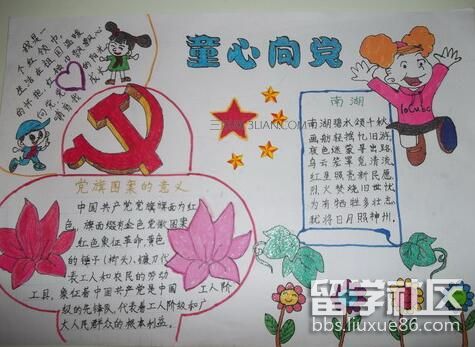 童心向党
我是一
个红领巾,
生活在祖国温暖
向党
成长
党旗图案的意义
中国共产党党旗旗面为红
色,旗面缀有金色党徽图案
红色象征革命,黄色
的锤子(柳头)、镰刀代
表工人和农民的劳动
工具,象征着中国共产党是中国工人阶
级的先锋队,代表着工人阶级和广
大人民群众的根本利益。
南湖
南湖碧水领千秋
画舫轻摇忆旧游
夜色迷蒙寻出路
乌云笼罩觅清流
红星照亮新民愿
烈火焚烧旧世忧
为有牺牲多壮志
犹将日月照神州。
IoCubc
3LIAN.COM
留学社区
bbs.liuxue86.com